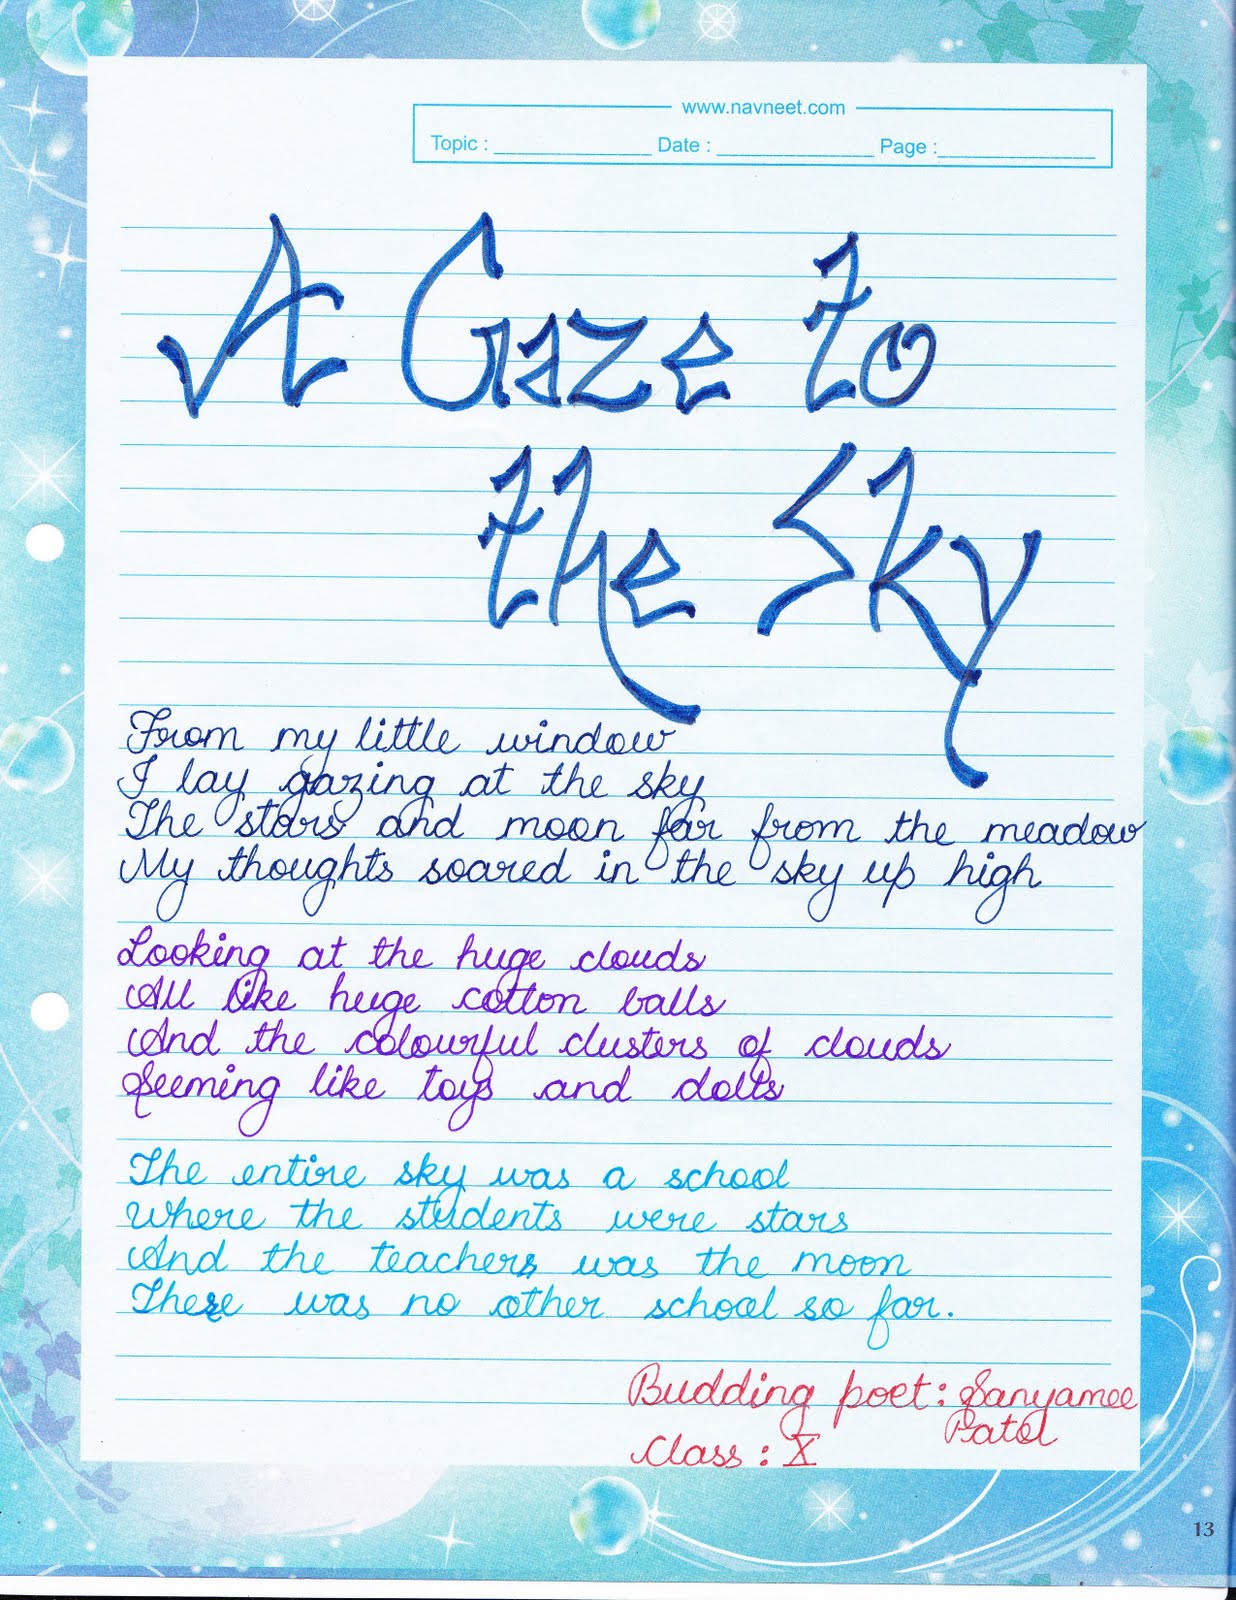 www.navneet.com
Topic : ______________ Date : ______________ Page :______________
A Gaze to
the Sky
From my little window
I lay gazing at the sky
The stars and moon far from the meadow
My thoughts soared in the sky up high
Looking at the huge clouds
All like huge cotton balls
And the colourful clusters of clouds
Seeming like toys and dolls
The entire sky was a school
Where the students were stars
And the teachers was the moon
There was no other school so far.
Budding poet: Sanyamee
Patel
Class : X
13